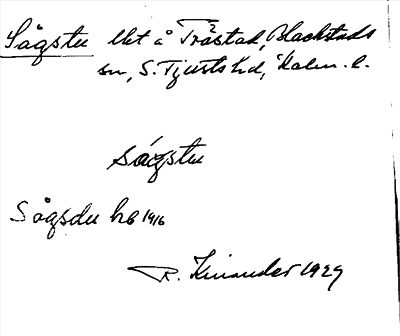 Sågstu lht å Tråstad, Blackstads
sn, S. Tjusts hd, Kalm. l.
sågstu
Sågsdu hb 1916
R. Kinander 1929